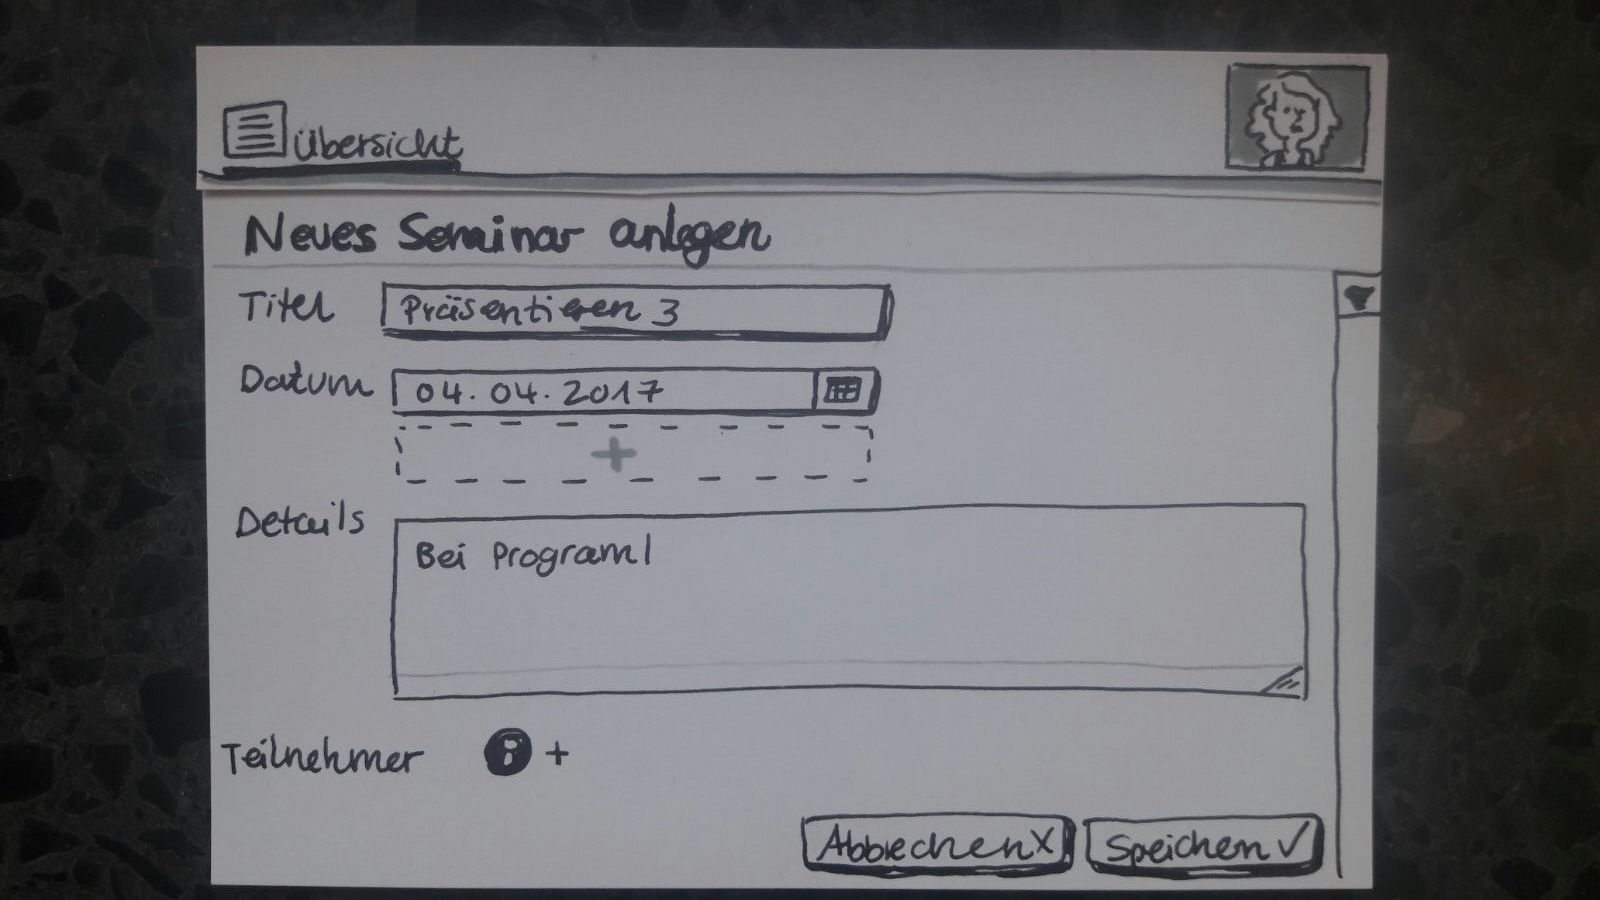 Übersicht
Neues Seminar anlegen
Titel Präsentieren 3
Datum 04.04.2017
+
Details
Bei Program|
Teilnehmer +
Abbrechen X Speichern ✓